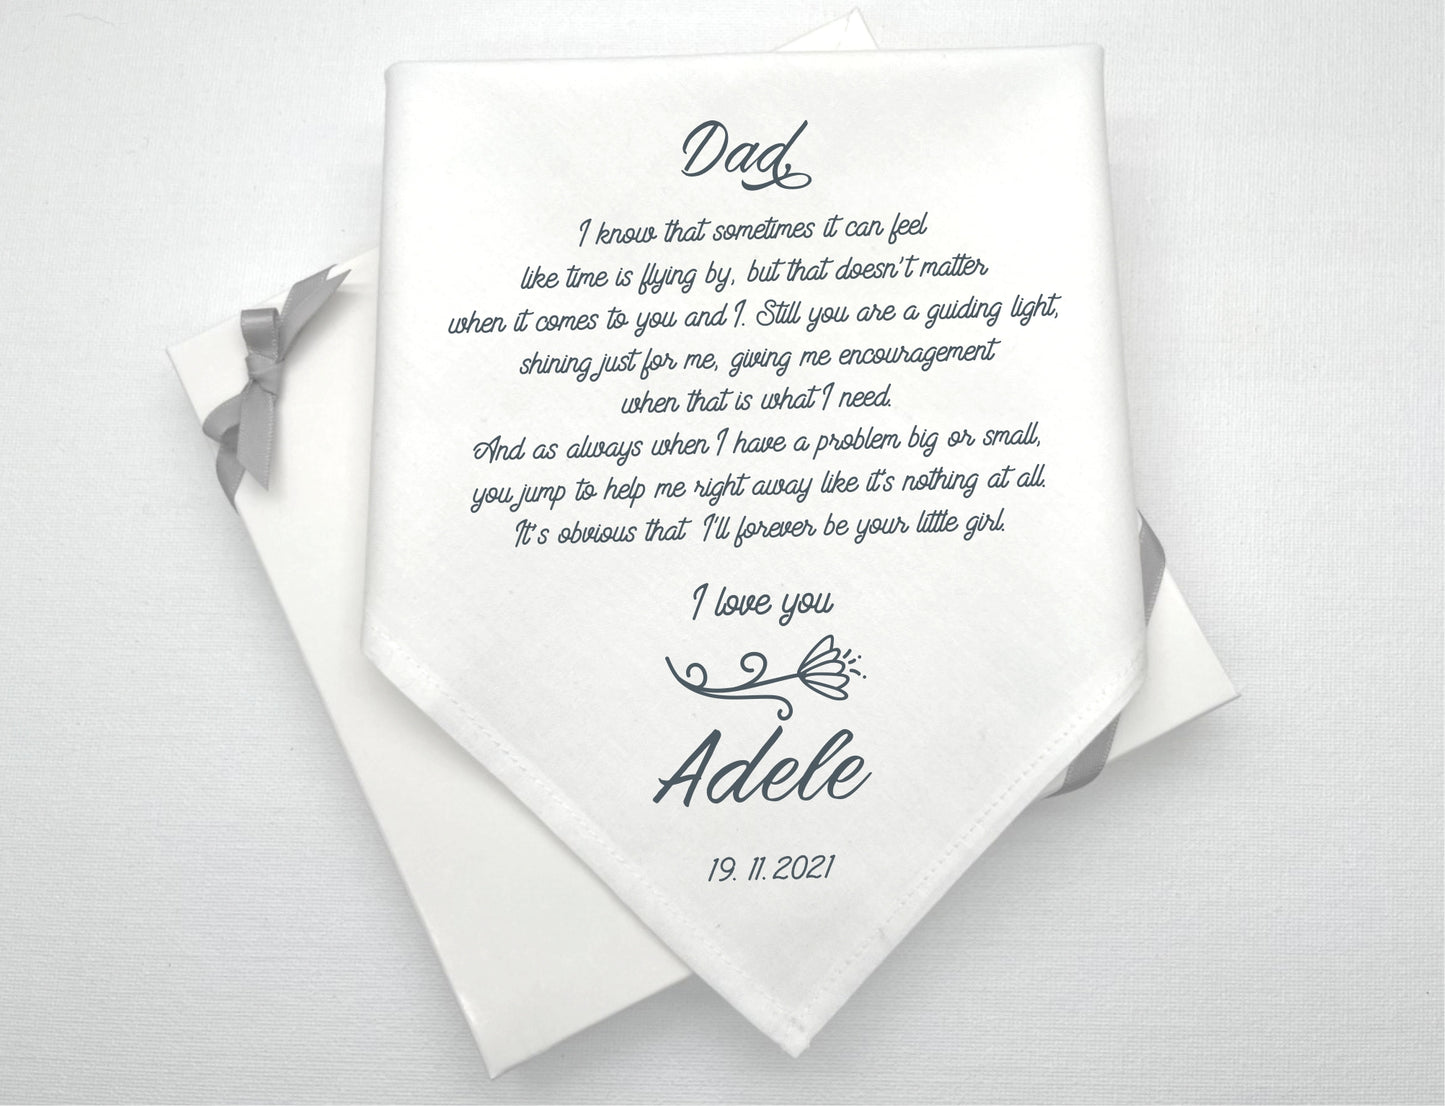 Dad,
I know that sometimes it can feel
like time is flying by, but that doesn't matter
when it comes to you and I. Still you are a guiding light,
shining just for me, giving me encouragement
when that is what I need.
And as always when I have a problem big or small,
you jump to help me right away like it's nothing at all.
It's obvious that I'll forever be your little girl.
I love you
Adele
19. 11. 2021